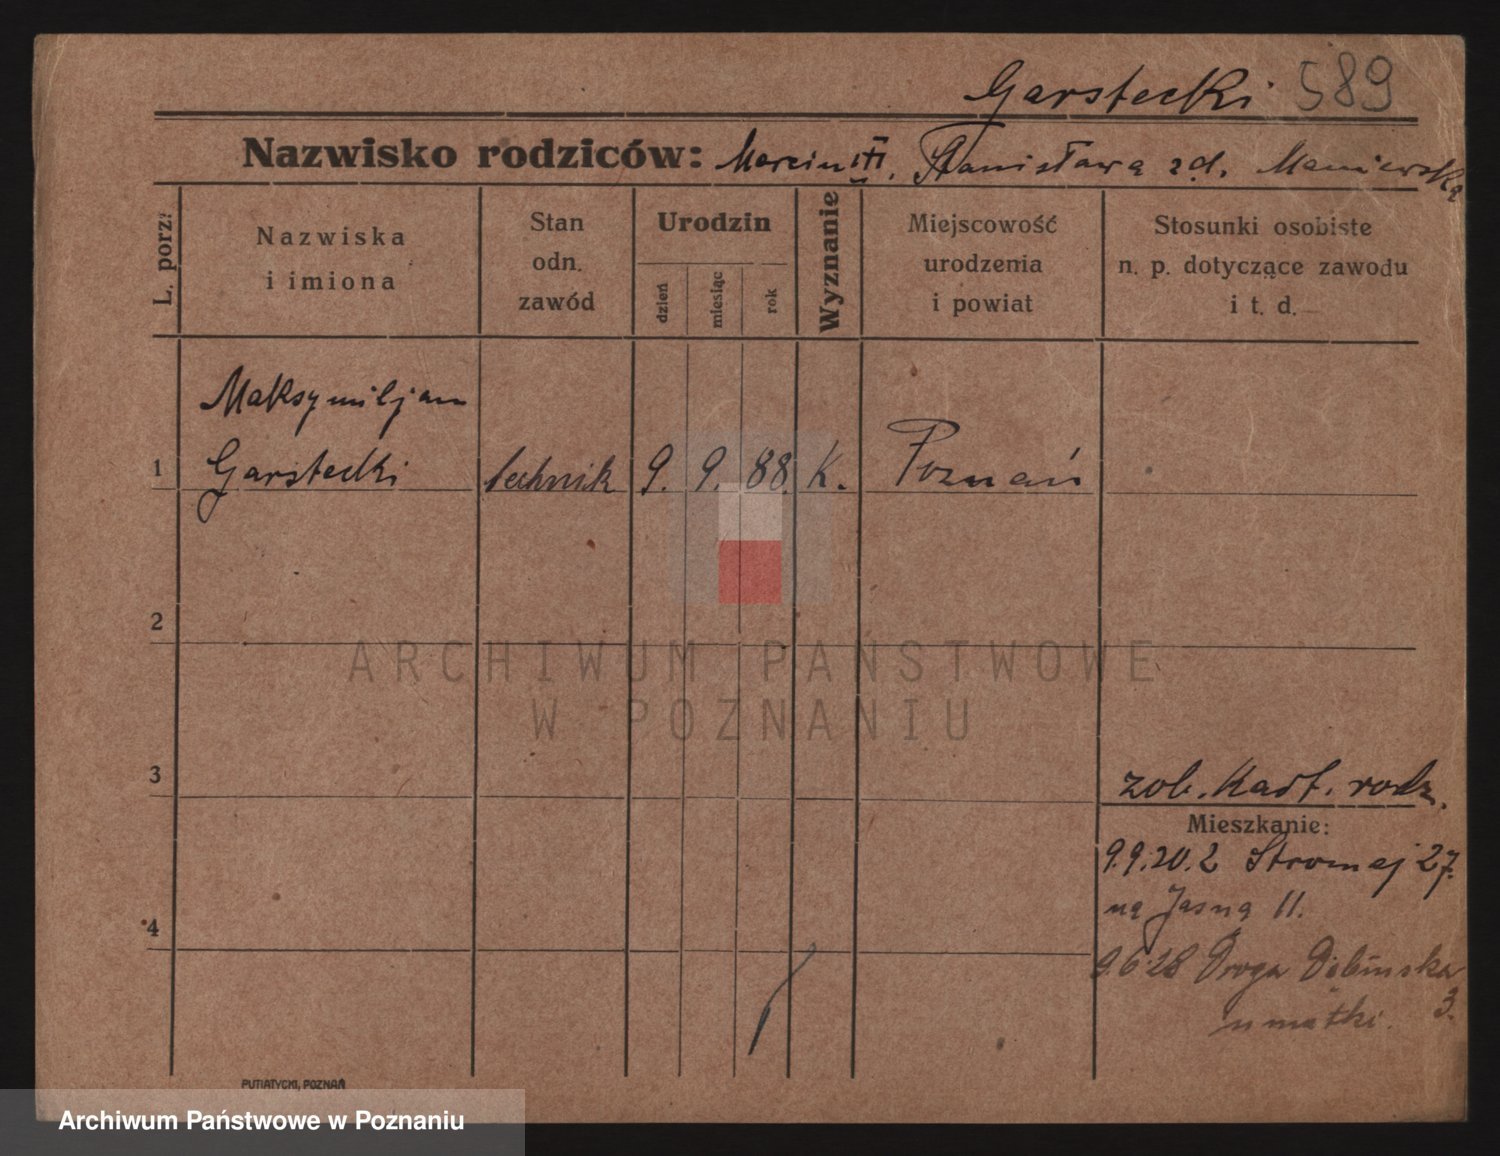 Garstecki 589
Nazwisko rodziców: Marcin III. Stanisława z d. Maniewska
L. porz.
Nazwiska
i imiona
Stan
odn.
zawód
Urodzin
dzień
miesiąc
rok
Wyznanie
Miejscowość
urodzenia
i powiat
Stosunki osobiste
n. p. dotyczące zawodu
i t. d.
Maksymiljan
1 Garstecki technik 9. 9. 88. K. Poznań
2
ARCHIWUM PAŃSTWOWE
W POZNANIU
3
zob. Kart. rodz.
Mieszkanie:
9.9.20. z Stromej 27.
na Jasną 11.
4
9.6.28 Droga Dębińska
3.
u matki.
PUTIATYCKI, POZNAŃ
Archiwum Państwowe w Poznaniu